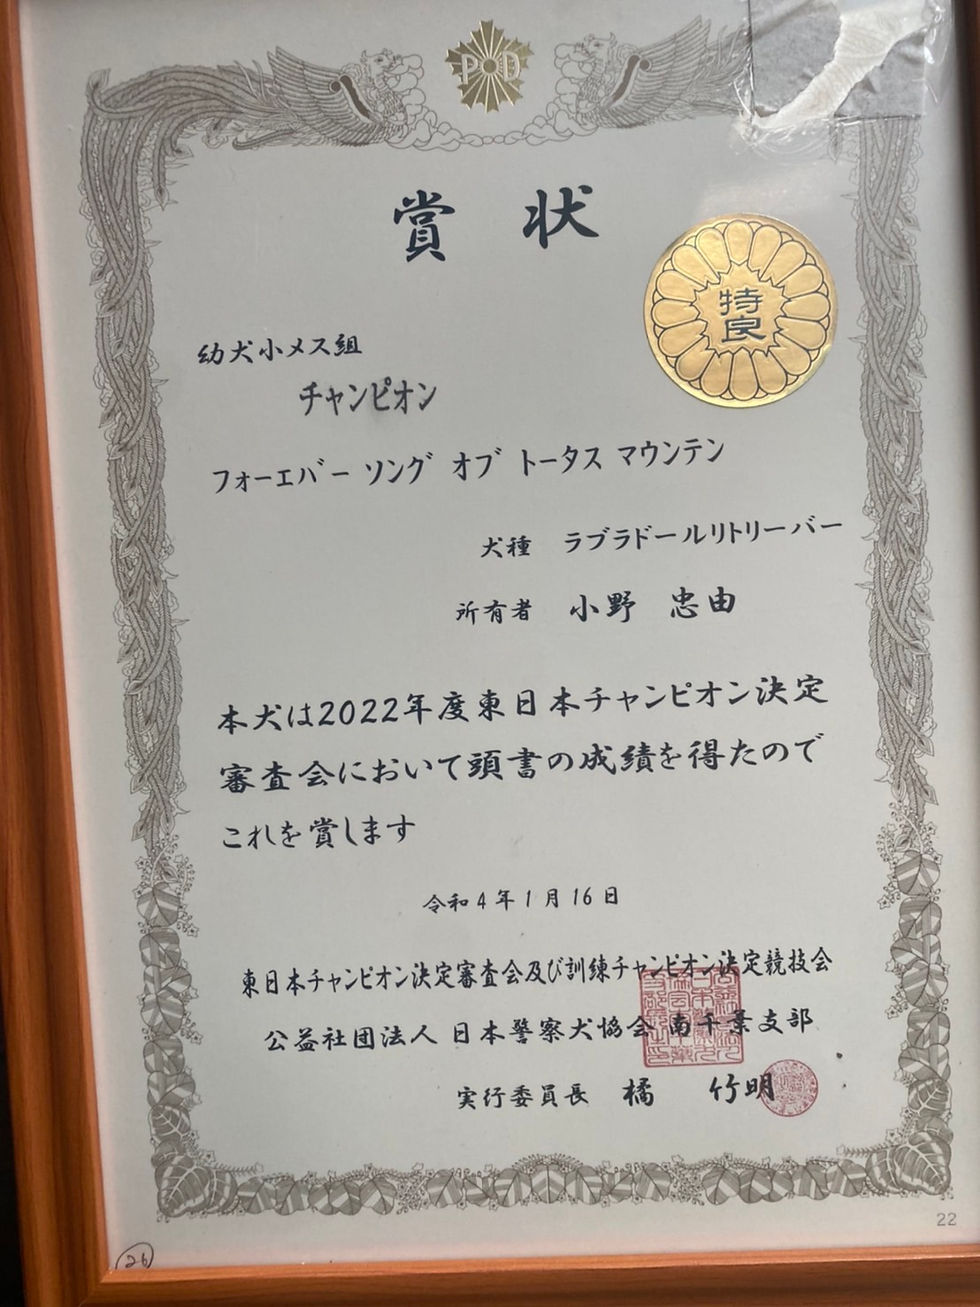 PD
賞 状
特良
幼犬小メス組
チャンピオン
フォーエバー ソング オブ トータス マウンテン
犬種 ラブラドールリトリーバー
所有者 小野 忠由
本犬は2022年度東日本チャンピオン決定
審査会において頭書の成績を得たので
これを賞します
令和4年1月16日
東日本チャンピオン決定審査会及び訓練チャンピオン決定競技会
公益社団法人 日本警察犬協会 南千葉支部
実行委員長 橘 竹明
22
26